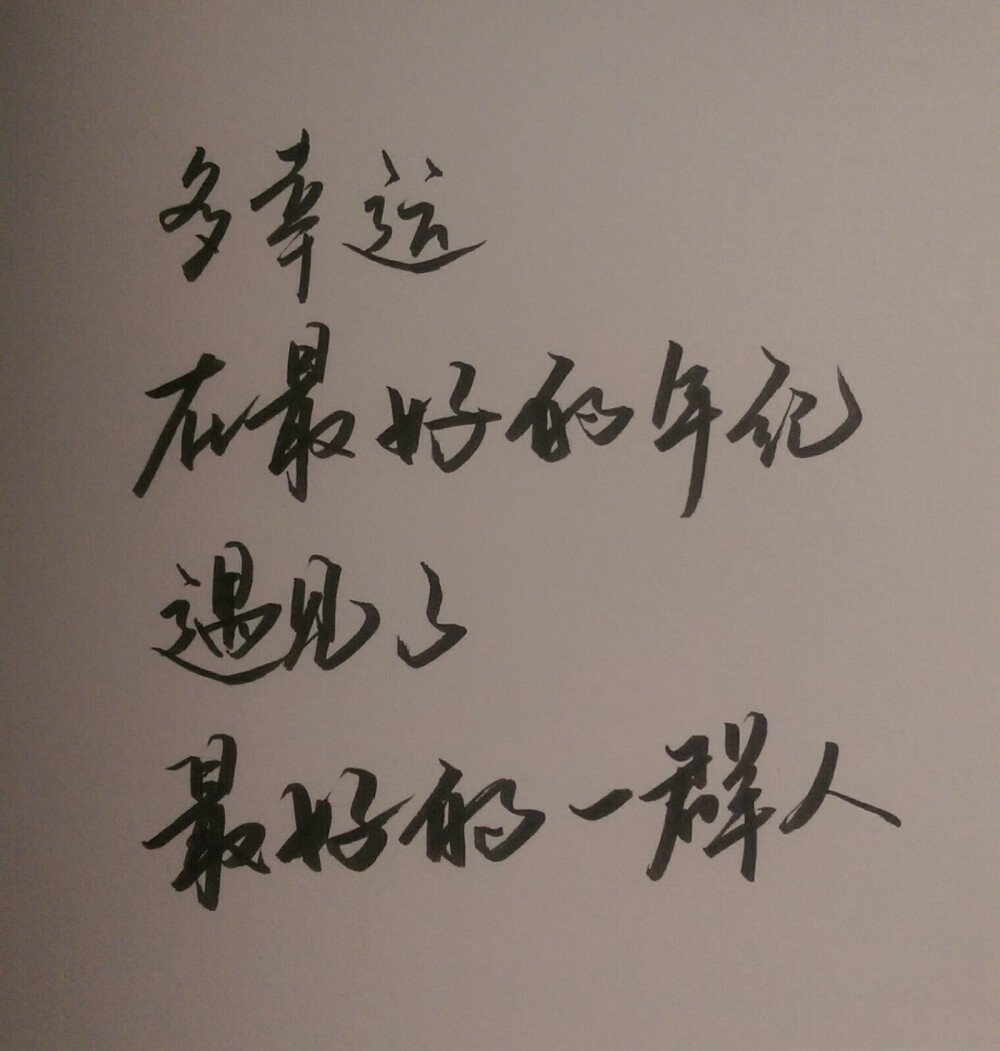 多幸运
在最好的年纪
遇见了
最好的一群人